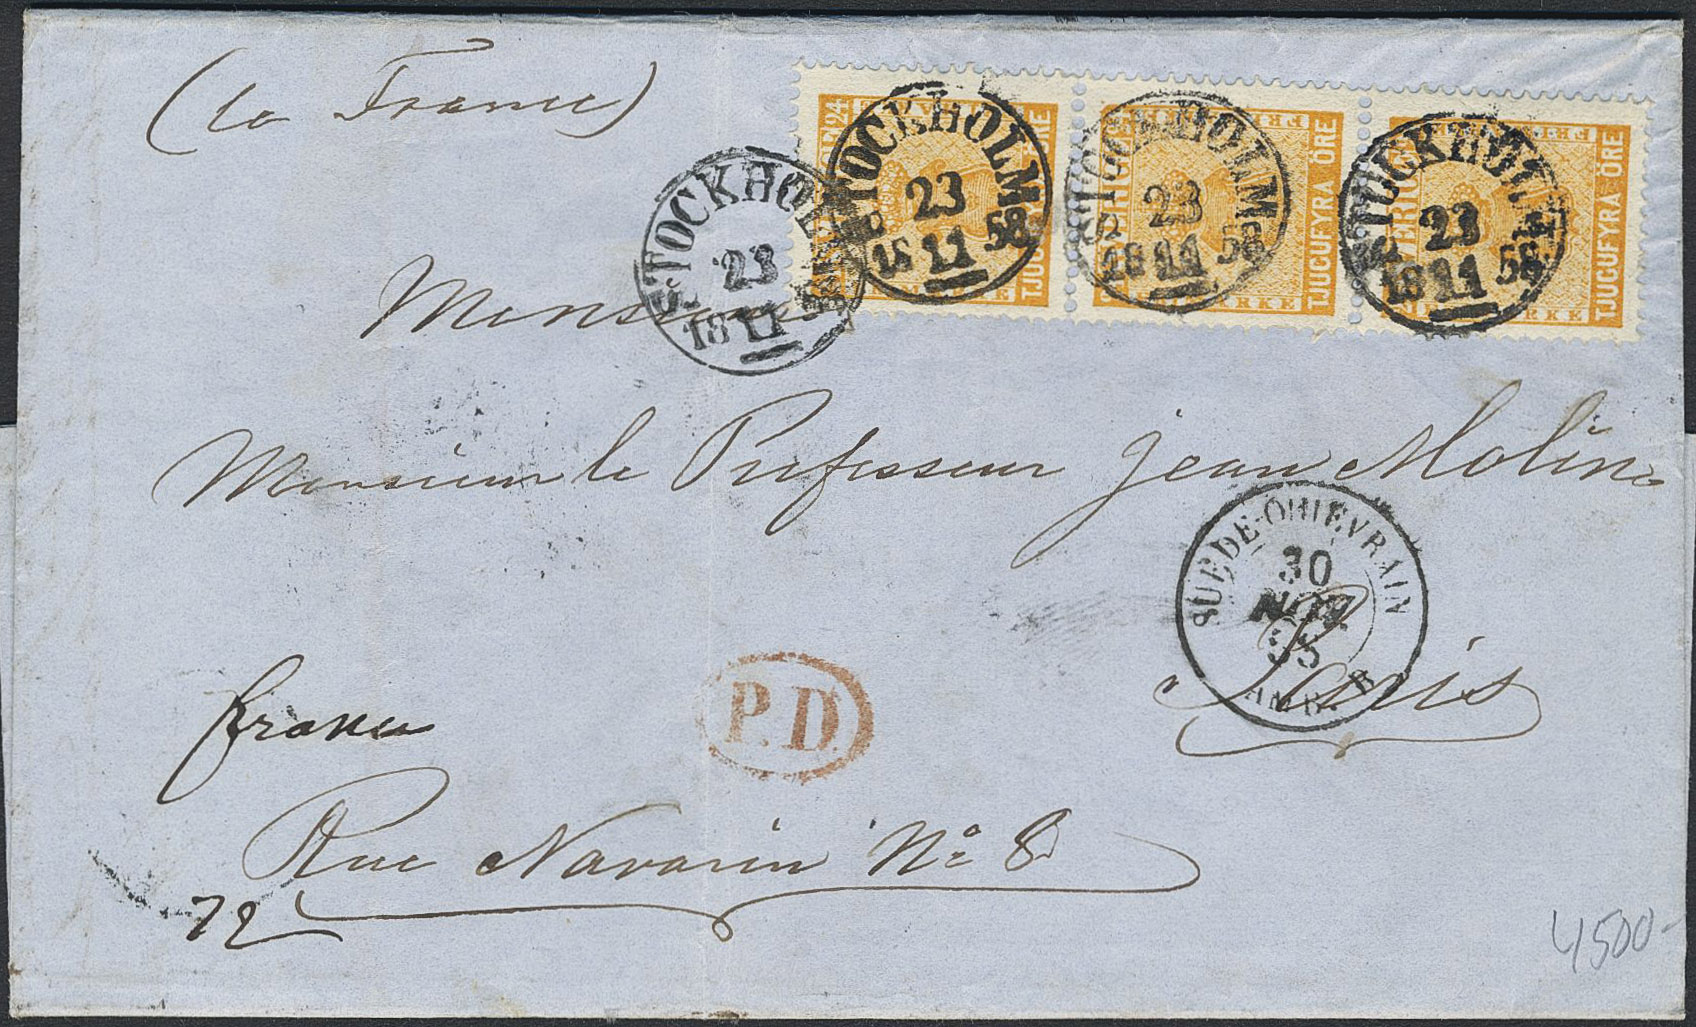 (la France)
STOCKHOLM
23
18 11
STOCKHOLM
23
18 11 58
STOCKHOLM
23
18 11 58
STOCKHOLM
23
18 11 58
24
TJUGUFYRA ÖRE
TJUGUFYRA ÖRE
Monsieur
Monsieur le Professeur Jean Molin
SUEDE-QUIEVRAIN
30
NOV.
AMB. B
Paris
P.D.
franco
Rue Navarin No 8
72
4500-